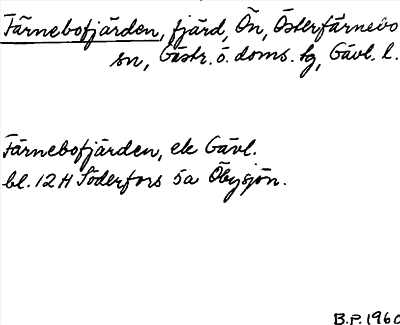 Färnebofjärden, fjärd, Ön, Österfärnebo
sn, Gästr. ö. doms. tg, Gävl. l.
Färnebofjärden, ek Gävl.
bl. 12 H Söderfors 5a Öbysjön.
B.P. 1960